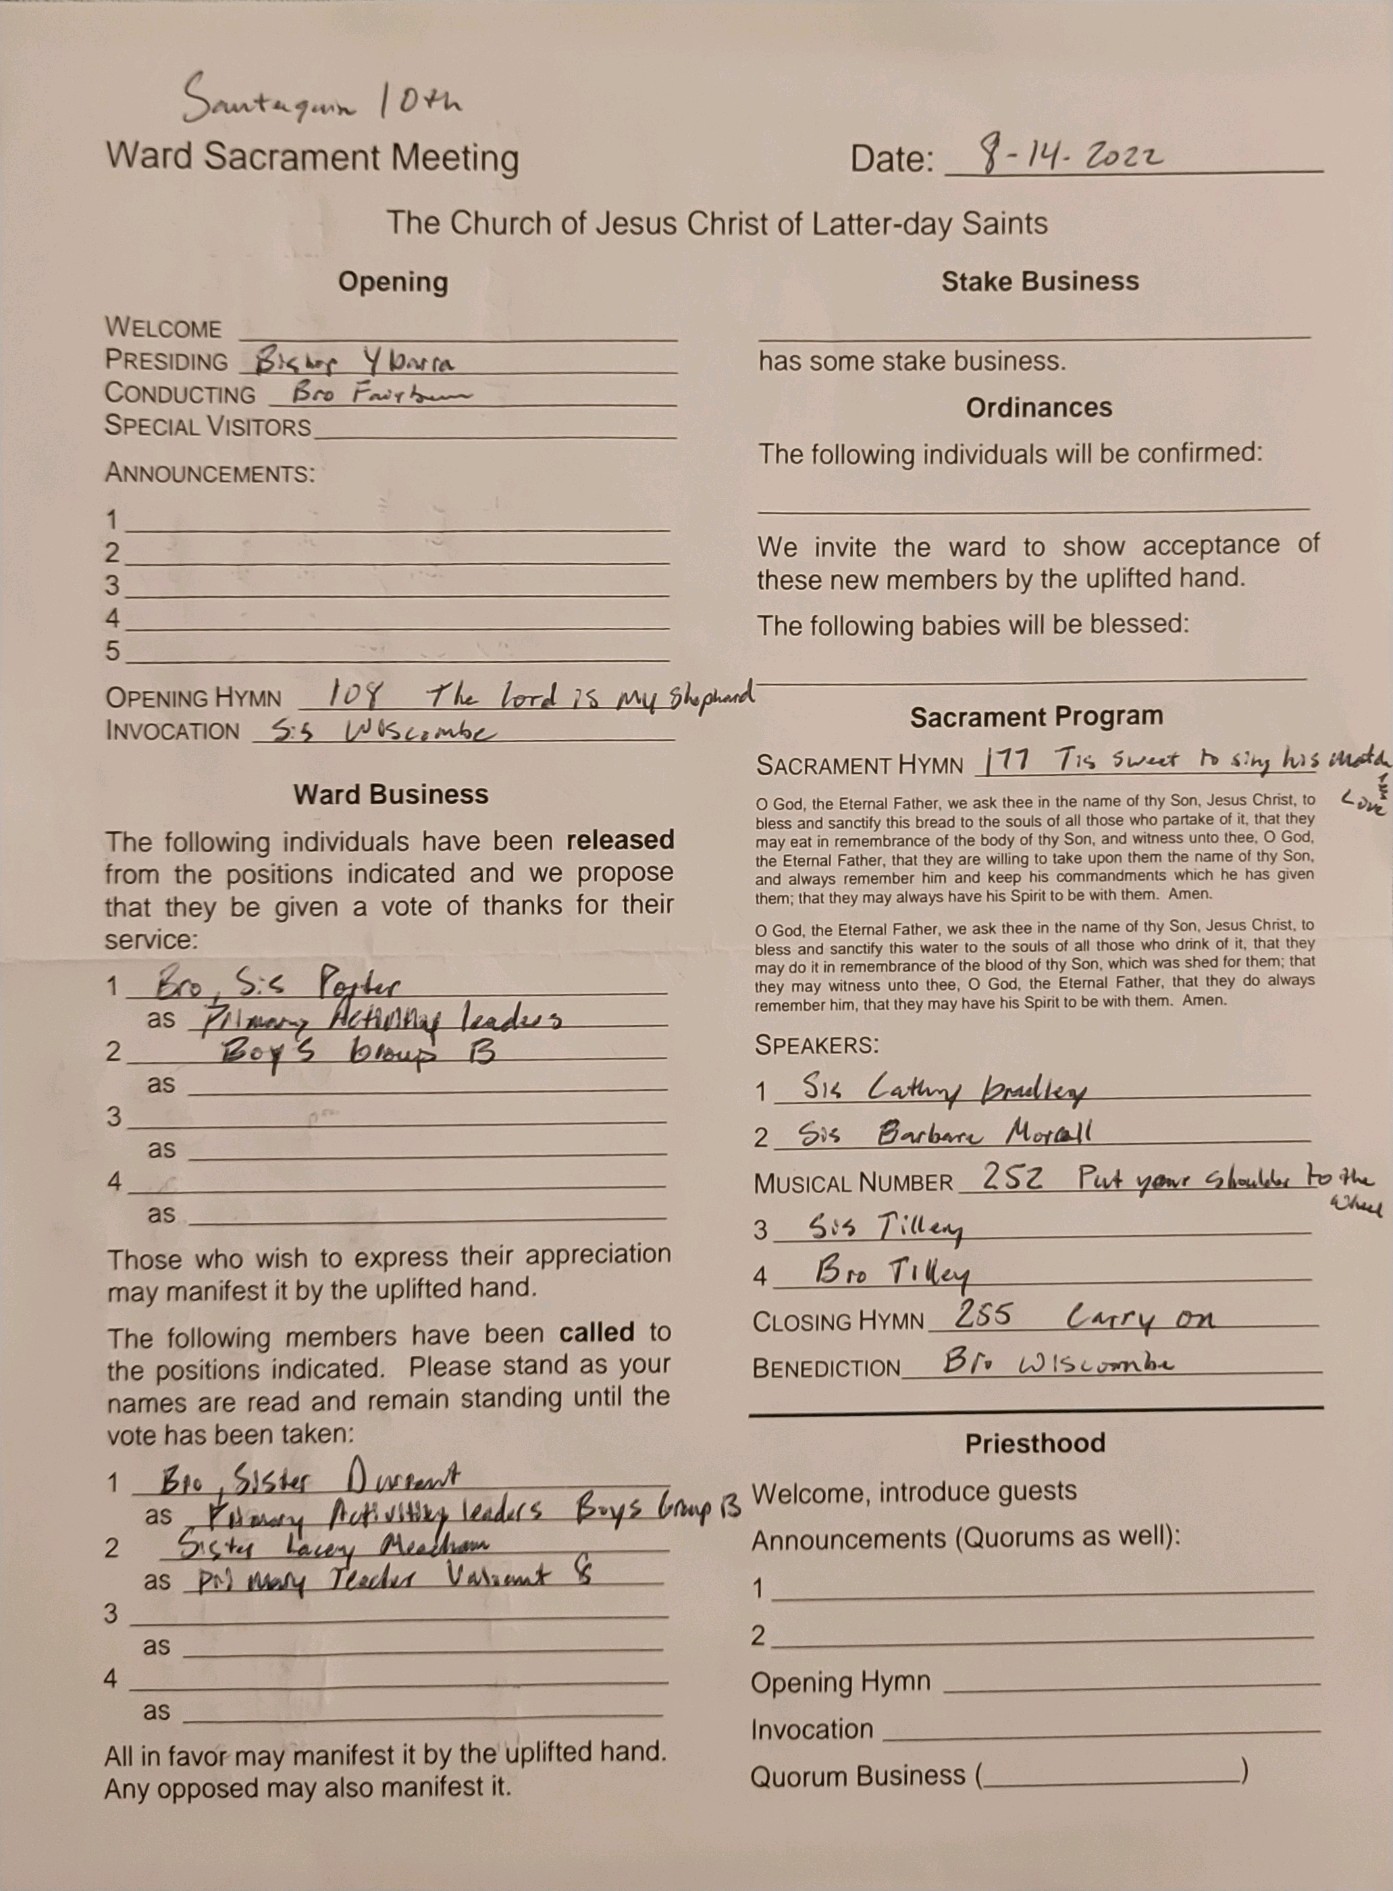 Santaquin 10th
Ward Sacrament Meeting
Date: 8-14-2022
The Church of Jesus Christ of Latter-day Saints
Opening
WELCOME
PRESIDING Bishop Ybarra
CONDUCTING Bro Fairbourn
SPECIAL VISITORS
ANNOUNCEMENTS:
1
2
3
4
5
OPENING HYMN 108 The lord is my Shephard
INVOCATION Sis Wiscombe
Ward Business
The following individuals have been released
from the positions indicated and we propose
that they be given a vote of thanks for their
service:
1 Bro, Sis Porter
as Primary Activity leaders
2 Boys Group B
as
3
as
4
as
Those who wish to express their appreciation
may manifest it by the uplifted hand.
The following members have been called to
the positions indicated. Please stand as your
names are read and remain standing until the
vote has been taken:
1 Bro, Sister Durrant
as Primary Activity leaders Boys Group B
2 Sister Lacey Meacham
as Primary Teacher Valiant 8
3
as
4
as
All in favor may manifest it by the uplifted hand.
Any opposed may also manifest it.
Stake Business
has some stake business.
Ordinances
The following individuals will be confirmed:
We invite the ward to show acceptance of
these new members by the uplifted hand.
The following babies will be blessed:
Sacrament Program
SACRAMENT HYMN 177 Tis sweet to sing his matchless
Love
O God, the Eternal Father, we ask thee in the name of thy Son, Jesus Christ, to
bless and sanctify this bread to the souls of all those who partake of it, that they
may eat in remembrance of the body of thy Son, and witness unto thee, O God,
the Eternal Father, that they are willing to take upon them the name of thy Son,
and always remember him and keep his commandments which he has given
them; that they may always have his Spirit to be with them. Amen.
O God, the Eternal Father, we ask thee in the name of thy Son, Jesus Christ, to
bless and sanctify this water to the souls of all those who drink of it, that they
may do it in remembrance of the blood of thy Son, which was shed for them; that
they may witness unto thee, O God, the Eternal Father, that they do always
remember him, that they may have his Spirit to be with them. Amen.
SPEAKERS:
1 Sis Cathy bradley
2 Sis Barbara
MUSICAL NUMBER 252 Put your shoulder to the
wheel
3 Sis Tilley
4 Bro Tilley
CLOSING HYMN 255 Carry on
BENEDICTION Bro Wiscombe
Priesthood
Welcome, introduce guests
Announcements (Quorums as well):
1
2
Opening Hymn
Invocation
Quorum Business ( )